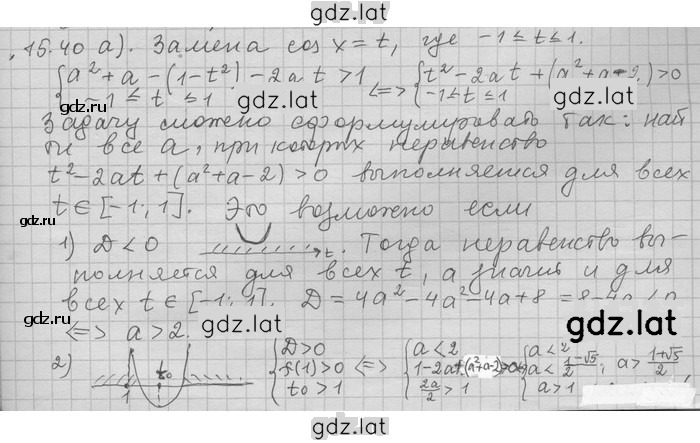 gdz.lat
15.40 а). Замена cos x = t, где -1 ≤ t ≤ 1.
{ a² + a - (1-t²) - 2at > 1 ; -1 ≤ t ≤ 1 <=> { t² - 2at + (a² + a - 2) > 0 ; -1 ≤ t ≤ 1
gdz.lat gdz.lat
Задачу можно сформулировать так: най
ти все a, при которых неравенство
t² - 2at + (a² + a - 2) > 0 выполняется для всех
gdz.lat
t ∈ [-1; 1]. Это возможно если
1) D < 0 t. Тогда неравенство вы-
полняется для всех t, а значит и для
всех t ∈ [-1; 1]. D = 4a² - 4a² - 4a + 8 = 8-4a < 0
gdz.lat gdz.lat
<=> a > 2.
2) 1 t₀ { D > 0 ; f(1) > 0 ; t₀ > 1 <=> { a < 2 ; 1 - 2a + (a²+a-2) > 0 ; 2a/2 > 1 <=> { a < 2 ; a < (1-√5)/2; a > (1+√5)/2 ; a > 1
gdz.lat